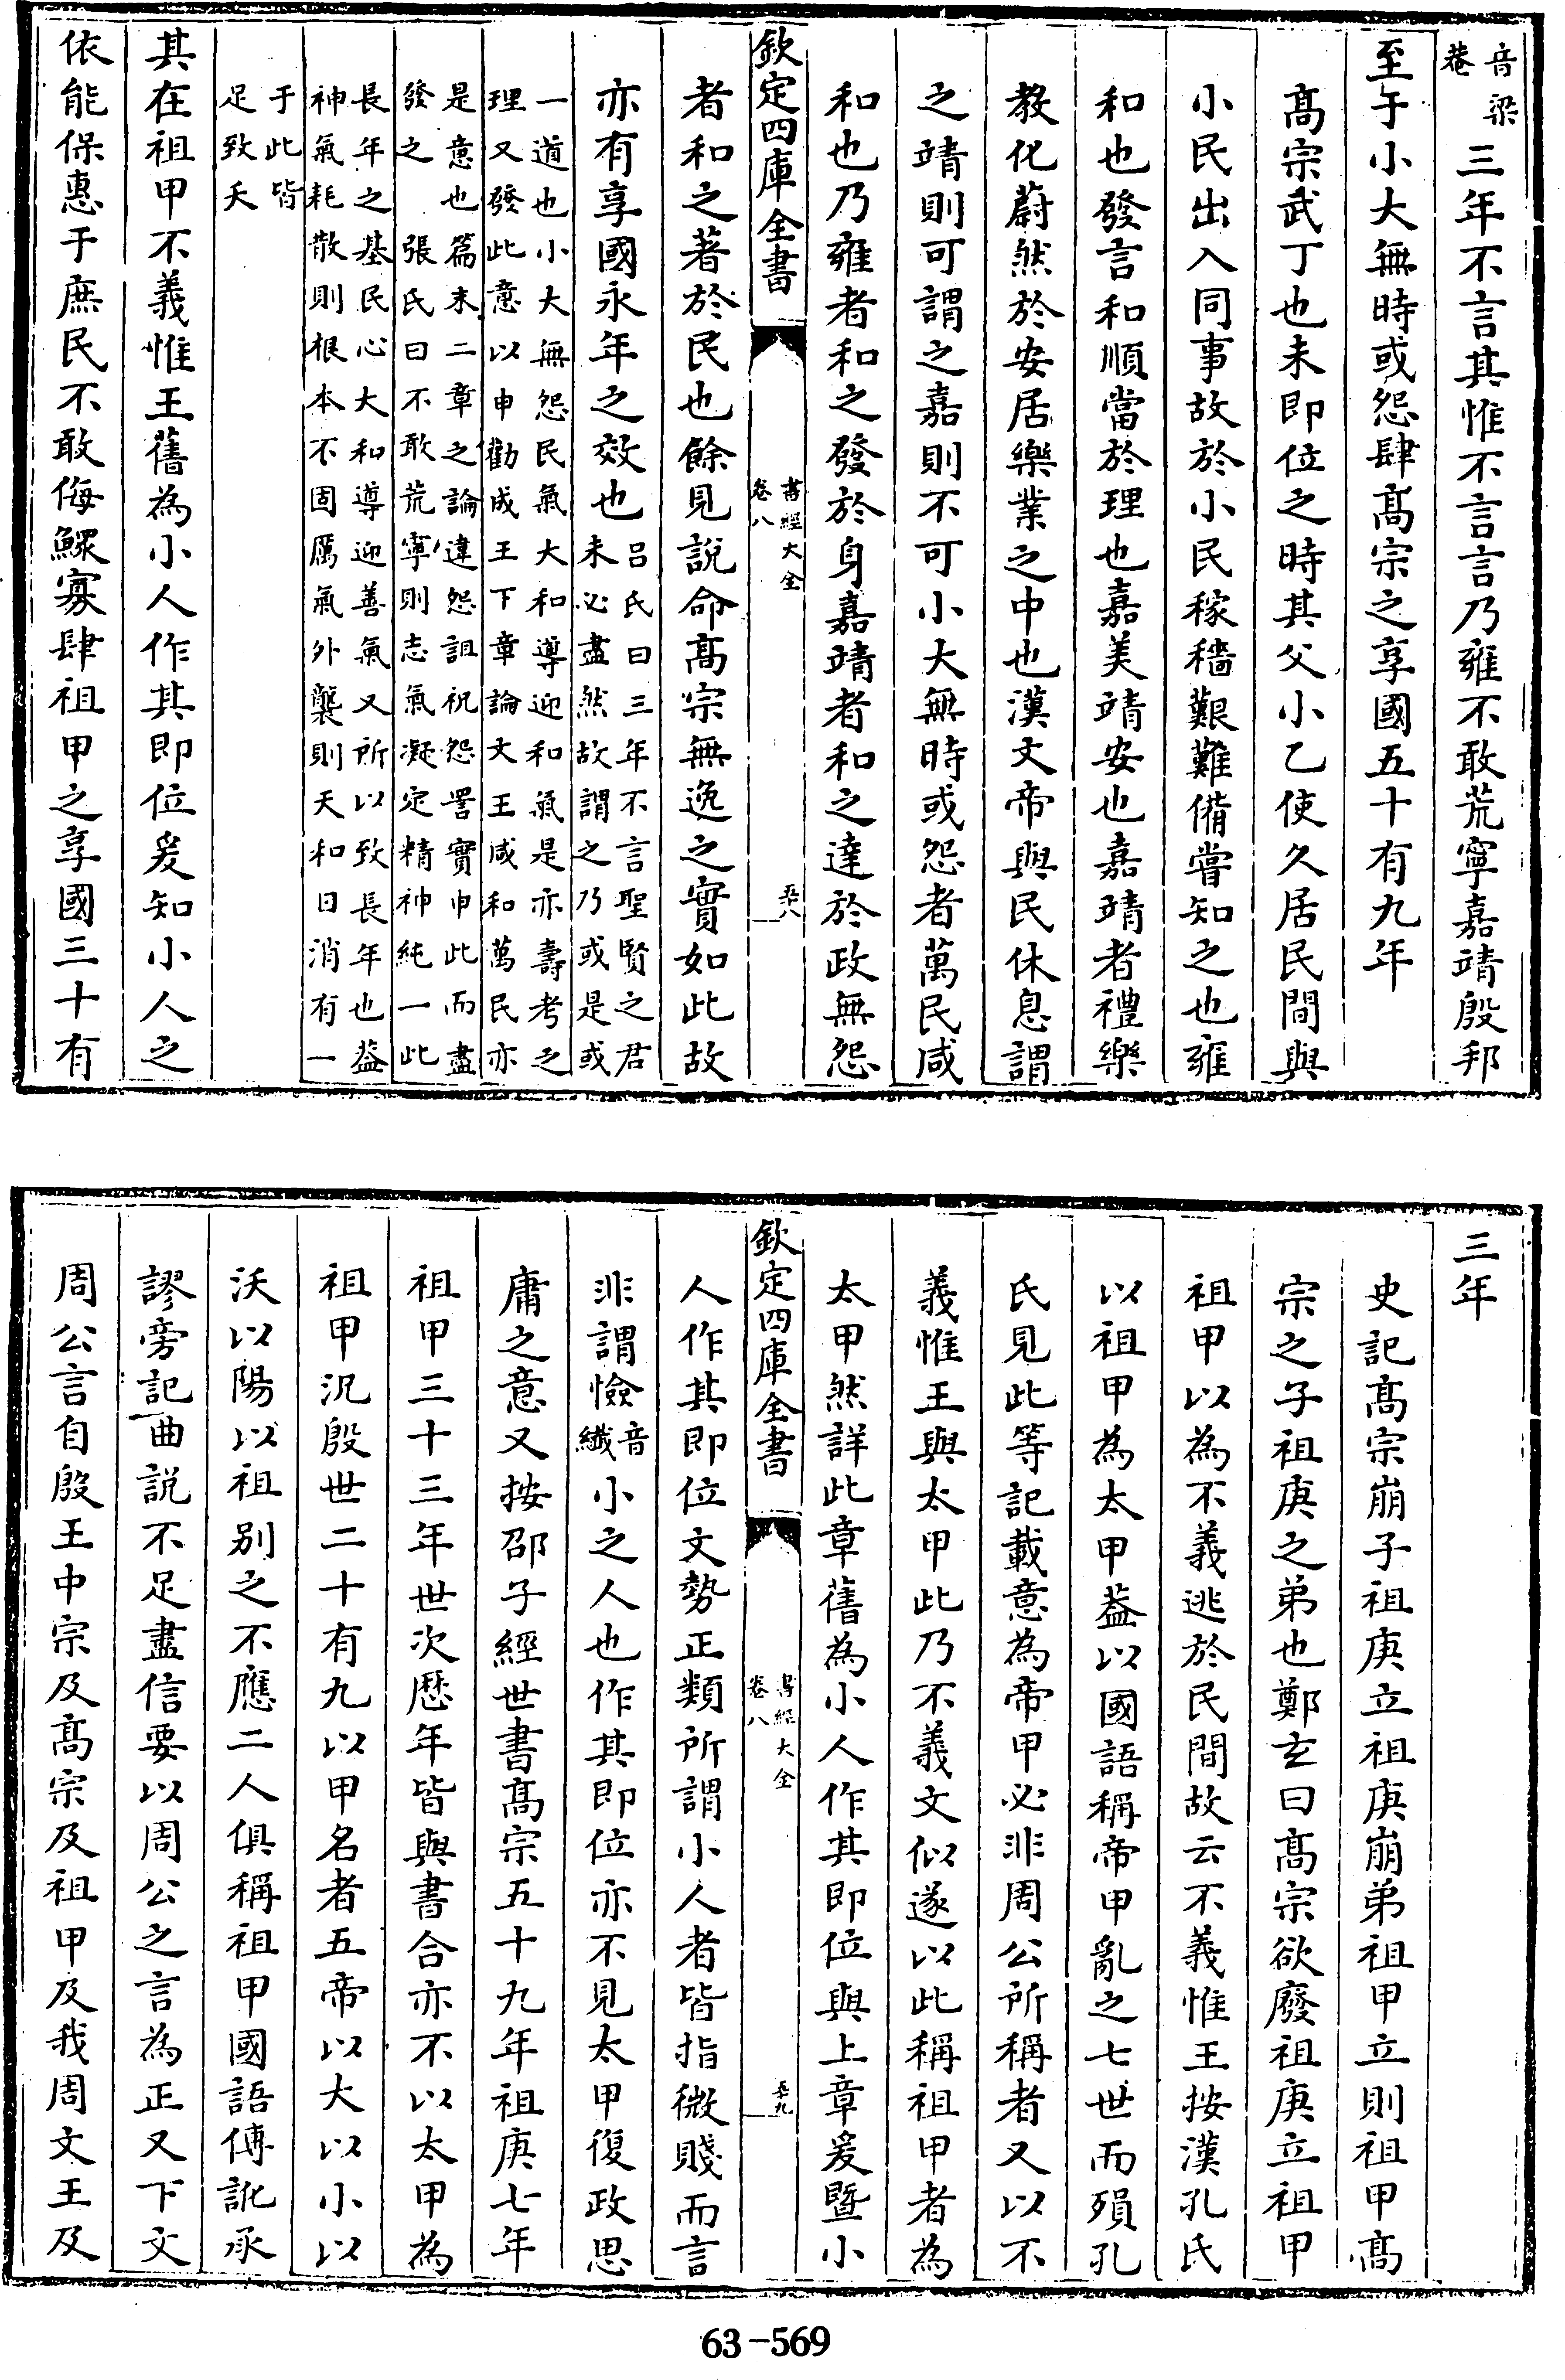 音梁
菴
三年不言其惟不言言乃雍不敢荒寧嘉靖殷邦
至于小大無時或怨肆髙宗之享國五十有九年
髙宗武丁也未即位之時其父小乙使久居民間與
小民出入同事故於小民稼穡艱難備嘗知之也雍
和也發言和順當於理也嘉美靖安也嘉靖者禮樂
教化蔚然於安居樂業之中也漢文帝與民休息謂
之靖則可謂之嘉則不可小大無時或怨者萬民咸
和也乃雍者和之發於身嘉靖者和之達於政無怨
欽定四庫全書
書經大全
卷八
五十八
者和之著於民也餘見說命髙宗無逸之實如此故
亦有享國永年之效也
呂氏曰三年不言聖賢之君
未必盡然故謂之乃或是或
一道也小大無怨民氣大和導迎和氣是亦壽考之
理又發此意以申勸成王下章論文王咸和萬民亦
是意也篇末二章之論違怨詛祝怨詈實申此而盡
發之張氏曰不敢荒寧則志氣凝定精神純一此
長年之基民心大和導迎善氣又所以致長年也葢
神氣耗散則根本不固厲氣外襲則天和日消有一
于此皆
足致夭
其在祖甲不義惟王舊為小人作其即位爰知小人之
依能保惠于庶民不敢侮鰥寡肆祖甲之享國三十有
三年
史記髙宗崩子祖庚立祖庚崩弟祖甲立則祖甲髙
宗之子祖庚之弟也鄭𤣥曰髙宗欲廢祖庚立祖甲
祖甲以為不義逃於民間故云不義惟王按漢孔氏
以祖甲為太甲葢以國語稱帝甲亂之七世而殞孔
氏見此等記載意為帝甲必非周公所稱者又以不
義惟王與太甲此乃不義文似遂以此稱祖甲者為
太甲然詳此章舊為小人作其即位與上章爰曁小
欽定四庫全書
書經大全
卷八
五十九
人作其即位文勢正類所謂小人者皆指微賤而言
非謂憸
音
纎
小之人也作其即位亦不見太甲復政思
庸之意又按邵子經世書髙宗五十九年祖庚七年
祖甲三十三年世次歴年皆與書合亦不以太甲為
祖甲況殷世二十有九以甲名者五帝以大以小以
沃以陽以祖别之不應二人俱稱祖甲國語傳訛承
謬旁記曲說不足盡信要以周公之言為正又下文
周公言自殷王中宗及髙宗及祖甲及我周文王及
63-569